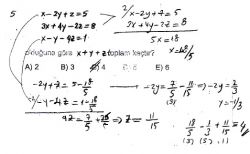 5 x-2y+z=5
3x+4y-2z=8
x-y-4z=1
olduğuna göre x+y+z toplamı kaçtır?
A) 2 B) 3 C) 4 D) 5 E) 6
2/ x-2y+z=5
3x+4y-2z=8
5x=18
x=18/5
-2y+z=5-18/5
2/ -y-4z=1-18/5
9z=7/5+26/5 ⇒ z=11/15
-2y=7/5-11/15 ⇒ -2y=2/3
(3)
y=-1/3
18/5-1/3+11/15=4
(3) (5) (1)